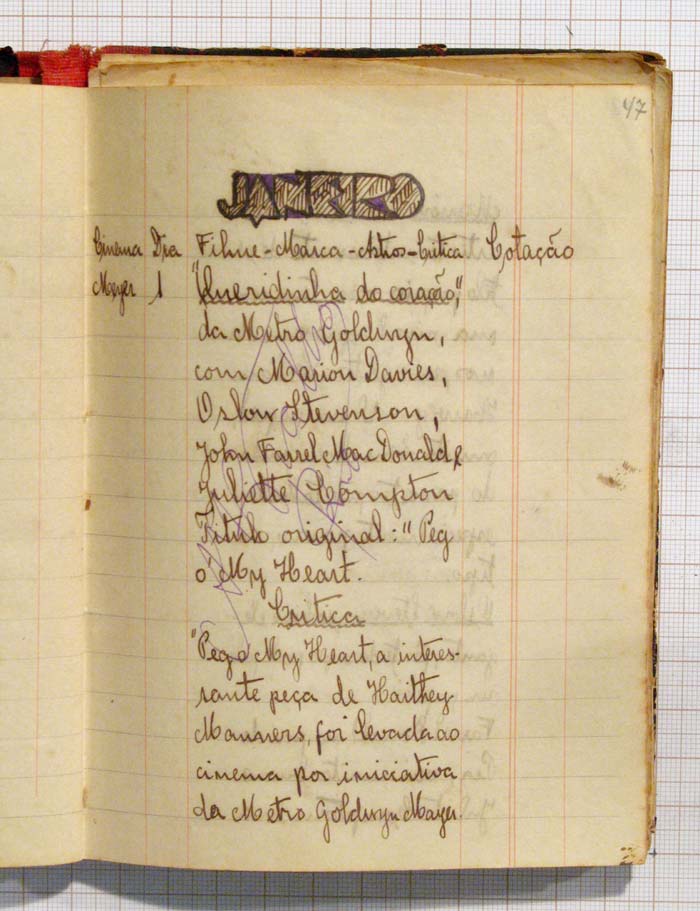 47
JANEIRO
Cinema Dia Filme-Marca-Astros-Critica Cotação
Meyer 1 "Queridinha do coração",
da Metro Goldwyn,
com Marion Davies,
Oslow Stevenson,
John Farrel MacDonald e
Juliette Compton
Titulo original: "Peg
o' My Heart.
Critica
"Peg o My Heart, a interes-
sante peça de Haithey
Manners, foi levada ao
cinema por iniciativa
da Metro Goldwyn Mayer.